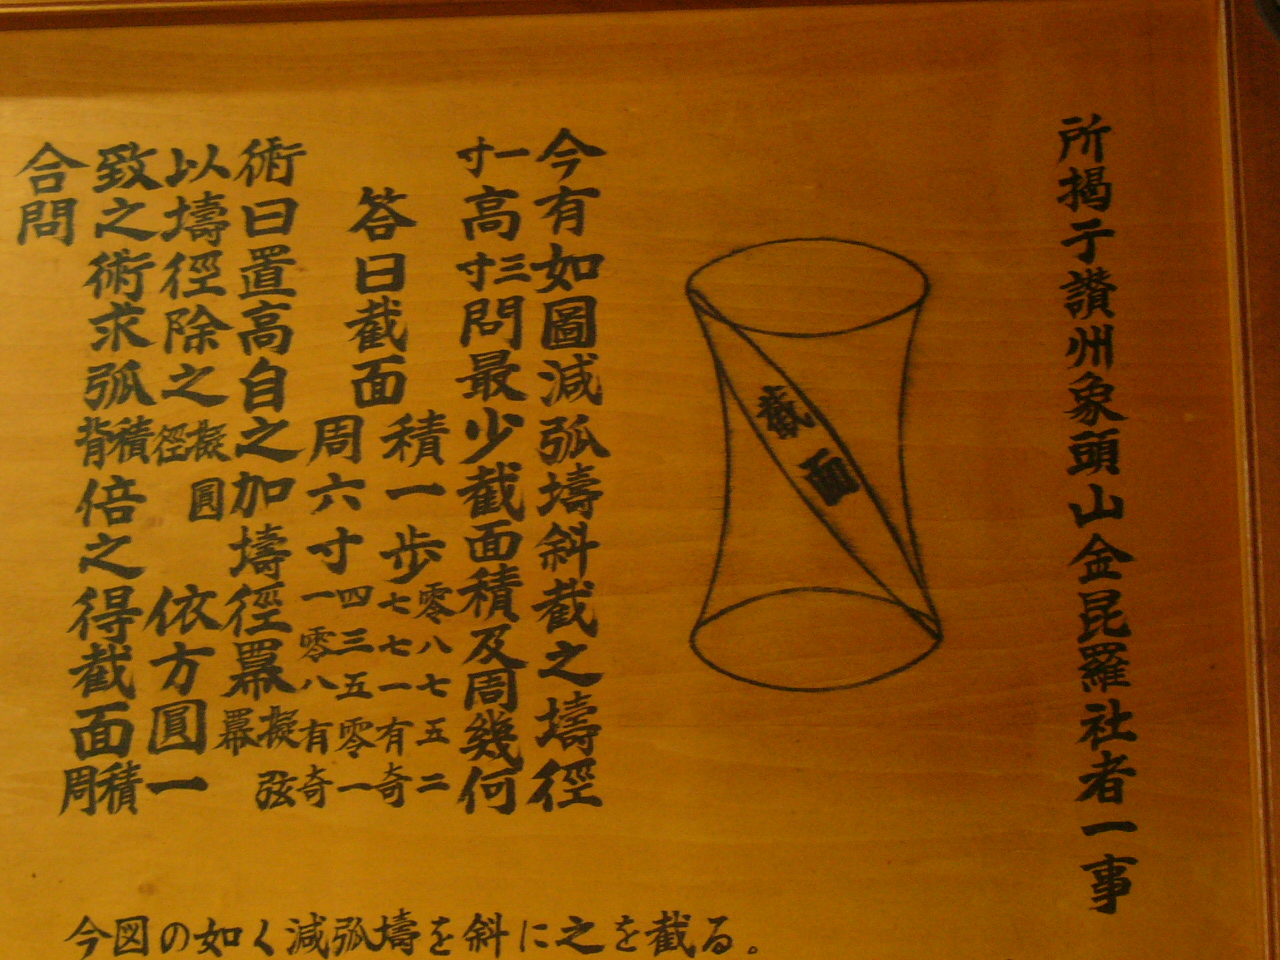 所掲于讃州象頭山金昆羅社者一事
截面
今有如圖減弧壔斜截之壔徑
一寸高三寸問最少截面積及周幾何
答曰截面積一歩零八七五二七七一有奇
周六寸四三五零一一零八有奇
術曰置高自之加壔徑冪擬弦冪
以壔徑除之擬圓徑依方圓一
致之術求弧積背倍之得截面積周
合問
今図の如く減弧壔を斜に之を截る。